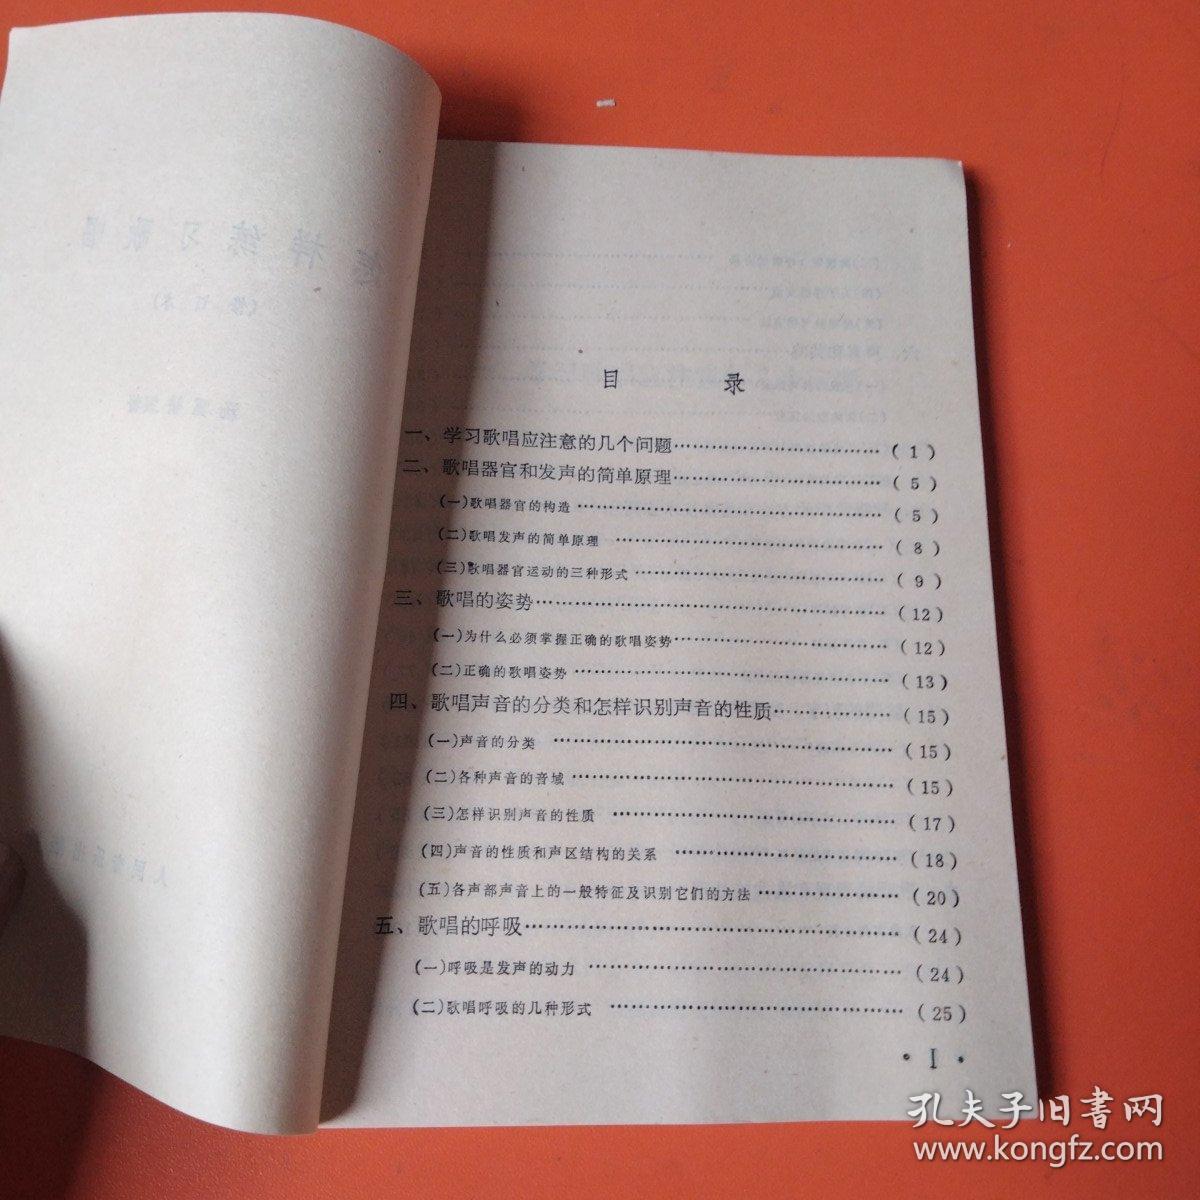 怎样练习歌唱
(修订本)
目 录
一、学习歌唱应注意的几个问题……………………………(1)
二、歌唱器官和发声的简单原理……………………………(5)
(一)歌唱器官的构造……………………………(5)
(二)歌唱发声的简单原理……………………………(8)
(三)歌唱器官运动的三种形式……………………………(9)
三、歌唱的姿势……………………………(12)
(一)为什么必须掌握正确的歌唱姿势……………………………(12)
(二)正确的歌唱姿势……………………………(13)
四、歌唱声音的分类和怎样识别声音的性质………………(15)
(一)声音的分类……………………………(15)
(二)各种声音的音域……………………………(15)
(三)怎样识别声音的性质……………………………(17)
(四)声音的性质和声区结构的关系……………………(18)
(五)各声部声音上的一般特征及识别它们的方法………………(20)
五、歌唱的呼吸……………………………(24)
(一)呼吸是发声的动力……………………………(24)
(二)歌唱呼吸的几种形式……………………………(25)
• I •
孔夫子旧書网
www.kongfz.com